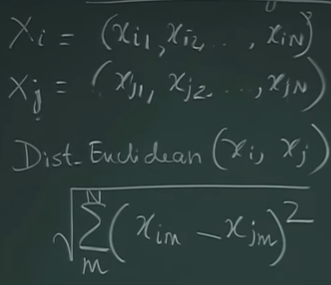 Xi = (xi1, xi2 . . . , xiN)
Xj = (xj1, xj2 . . . , xjN)
Dist_Euclidean (xi, xj)
√ ∑ N m (xim - xjm)²